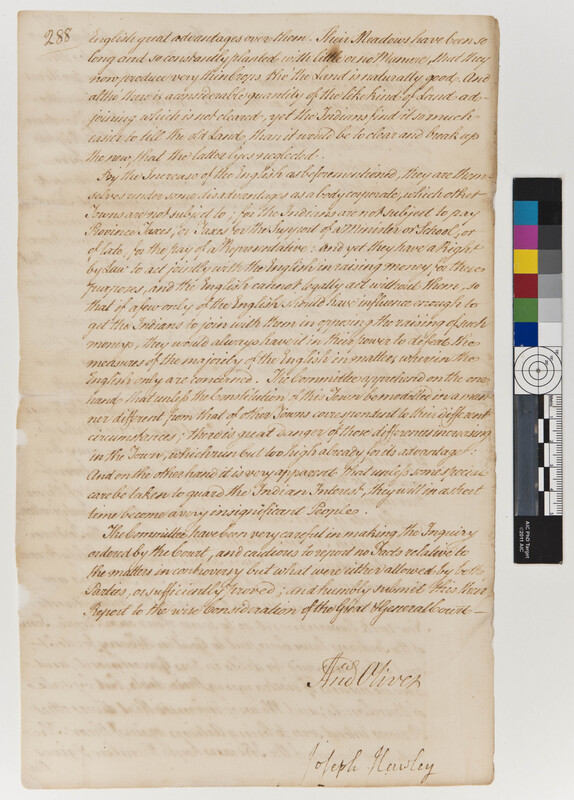 288
English great advantages over them. Their Meadows have been so
long and so constantly planted with little or no Manure, that they
now produce very thin Crops tho' the Land is naturally good. And
altho' there is a considerable quantity of the like kind of Land ad-
joining which is not cleared, yet the Indians find it so much
easier to till the old Land, than it would be to clear and break up
the new, that the latter lyes neglected.
By the Increase of the English as beforementioned, they are them-
selves under some disadvantages as a body corporate, which other
Towns are not subject to; for the Indians are not subject to pay
Province Taxes, or Taxes for the Support of a Minister or School, or
of late, for the pay of a Representative: and yet they have a Right
by Law to act jointly with the English in raising money for these
purposes, and the English cannot legally act without them, so
that if a few only of the English should have influence enough to
get the Indians to join with them in opposing the raising of such
moneys, they would always have it in their power to defeat the
measures of the majority of the English in matters wherein the
English only are concerned. The Committee apprehend on the one
hand that unless the Constitution of this Town be modelled in a man-
ner different from that of other Towns correspondent to their different
circumstances; there is great danger of those differences increasing
in the Town, which run but too high already for its advantage:
And on the other hand it is very apparent that unless some special
care be taken to guard the Indian Interest, they will in a short
time become a very insignificant People.
The Committee have been very careful in making the Inquiry
ordered by the Court, and cautious to report no Facts relative to
the matters in controversy but what were either allowed by both
Parties, or sufficiently proved; and humbly submit this their
Report to the wise Consideration of the Great & General Court—
And Oliver
Joseph Hawley
AIC PhD Target
©2011 AIC